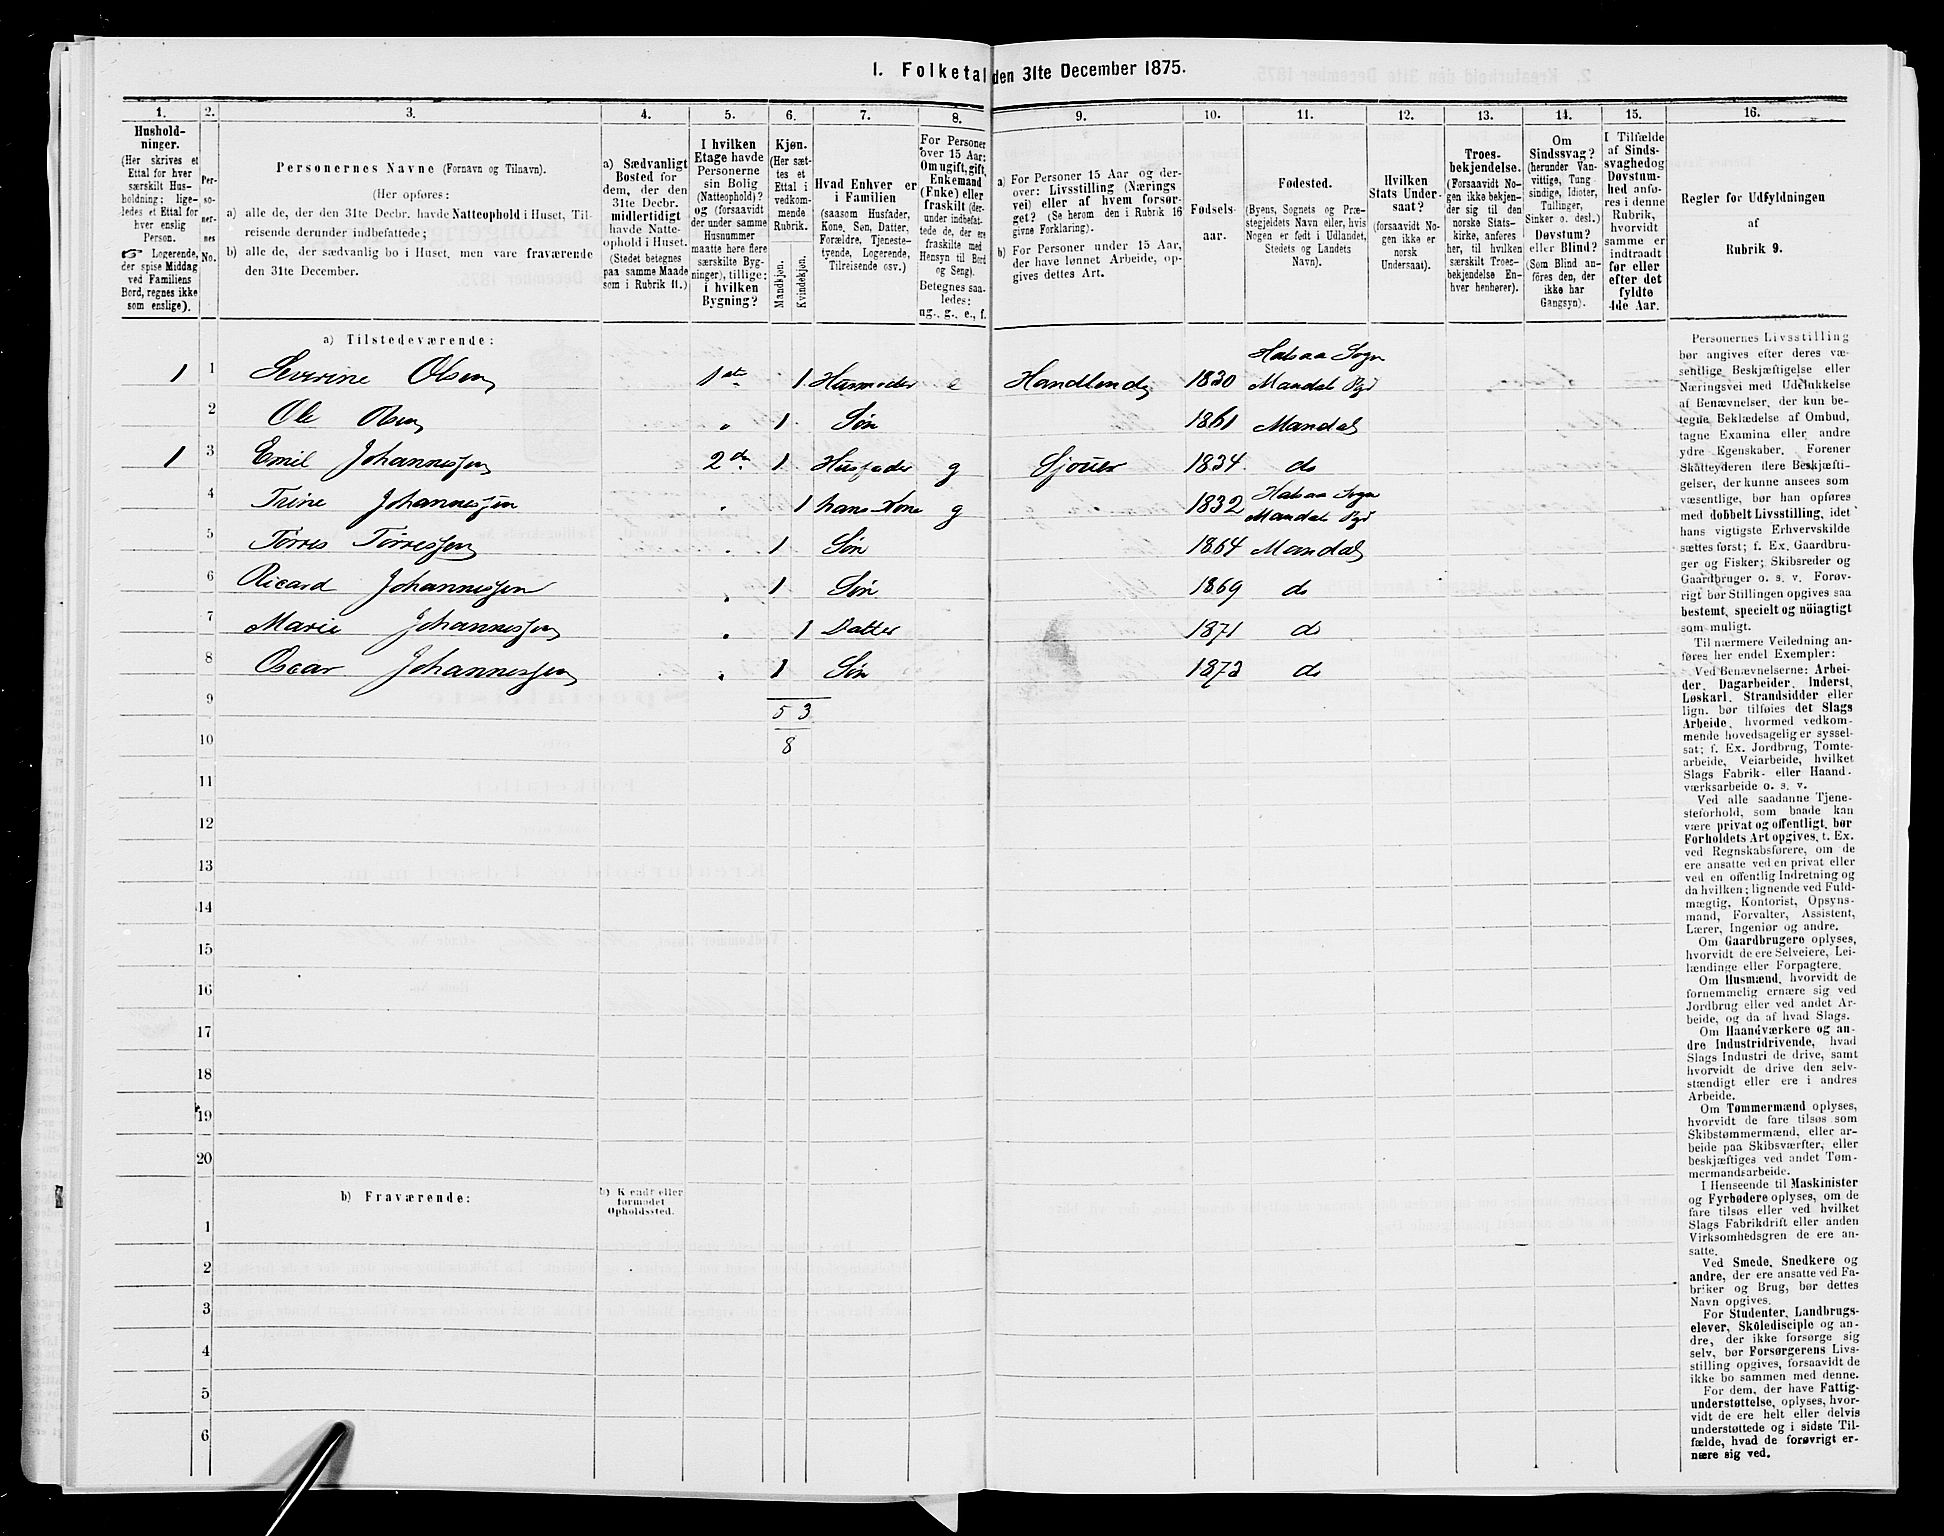 1. Folketal den 31te December 1875.
1. 2. 3. 4. 5. 6. 7. 8. 9. 10. 11. 12. 13. 14. 15. 16.
Hushold-
ninger.
(Her skrives et
Ettal for hver
særskilt Hus-
holdning: lige-
ledes et Ettal for
hver enslig
Person.
☞ Logerende,
der spise Middag
ved Familiens
Bord, regnes ikke
som enslige).
Per-
so-
ner-
nes
No.
Personernes Navne (Fornavn og Tilnavn).
(Her opføres:
a) alle de, der den 31te Decbr. havde Natteophold i Huset, Til-
reisende derunder indbefattede;
b) alle de, der sædvanlig bo i Huset, men vare fraværende
den 31te December.
a) Sædvanligt
Bosted for
dem, der den
31te Decbr.
midlertidigt
havde Natte-
ophold i Huset.
(Stedet betegnes
paa samme Maade
som i Rubrik 11.)
I hvilken
Etage havde
Personerne
sin Bolig
(Natteophold)?
og (forsaavidt
der under samme
Husnummer
maatte høre flere
særskilte Byg-
ninger), tillige:
i hvilken
Bygning?
Kjøn.
(Her sæt-
tes et
Ettal i
vedkom-
mende
Rubrik.
Mandkjøn.
Kvindekjøn.
Hvad Enhver er
i Familien
(saasom Husfader,
Kone, Søn, Datter,
Forældre, Tjeneste-
tyende, Logerende,
Tilreisende osv.)
For Personer
over 15 Aar:
Om ugift, gift,
Enkemand
(Enke) eller
fraskilt (der-
under indbefat-
tede de, der ere
fraskilte med
Hensyn til Bord
og Seng).
Betegnes saa-
ledes:
ug., g., e., f.
a) For Personer 15 Aar og der-
over: Livsstilling (Nærings
vei) eller af hvem forsør-
get? (Se herom den i Rubrik 16
givne Forklaring).
b) For Personer under 15 Aar,
der have lønnet Arbeide, op-
gives dettes Art.
Fødsels-
aar.
Fødested.
(Byens, Sognets og Præ-
stegjeldets Navn eller, hvis
Nogen er født i Udlandet,
Stedets og Landets
Navn).
I hvilken
Stats Under-
saat?
(forsaavidt No-
gen ikke er
norsk
Undersaat).
Troes-
bekjendelse.
(Forsaavidt No-
gen ikke bekjen-
der sig til den
norske Stats-
kirke, anføres
her, til hvilken
særskilt Troes-
bekjendelse En-
hver henhører).
Om
Sindssvag?
(herunder Van-
vittige, Tung
sindige, Idioter,
Tullinger,
Sinker o. desl.)
Døvstum?
eller Blind?
(Som Blind an-
føres den, der
ikke har
Gangsyn).
I Tilfælde
af Sinds-
svaghed og
Døvstum-
hed anfø-
res i denne
Rubrik,
hvorvidt
samme er
indtraadt
før eller
efter det
fyldte
4de Aar.
Regler for Udfyldningen
af
Rubrik 9.
a) Tilstedeværende:
1 1 Severine Olsen 1ste 1 Husmoder e Handlende 1830 Halsaa Sogn Mandal Pgd
2 Ole Olsen " 1 Søn 1861 Mandal
1 3 Emil Johannessen 2den 1 Husfader g Sjouer 1834 do
4 Trine Johannessen " 1 hans Kone g 1832 Halsaa Sogn Mandal Pgd
5 Tørres Tørressen " 1 Søn 1864 Mandal
6 Ricard Johannessen " 1 Søn 1869 do
7 Marie Johannessen " 1 Datter 1871 do
8 Oscar Johannessen " 1 Søn 1873 do
9 5 3
10 8
11
12
13
14
15
16
17
18
19
20
b) Fraværende:
b) Kjendt eller
formodet
Opholdssted.
1
2
3
4
5
6
Personernes Livsstilling
bør angives efter deres væ-
sentlige Beskjæftigelse eller
Næringsvei med Udelukkelse
af Benævnelser, der kun be-
tegne Beklædelse af Ombud,
tagne Examina eller andre
ydre Egenskaber. Forener
Skatteyderen flere Beskjæfti-
gelser, der kunne ansees som
væsentlige, bør han opføres
med dobbelt Livsstilling, idet
hans vigtigste Erhvervskilde
sættes først; f. Ex. Gaardbru-
ger og Fisker; Skibsreder og
Gaardbruger o. s. v. Forøv-
rigt bør Stillingen opgives saa
bestemt, specielt og nöiagtigt
som muligt.
Til nærmere Veiledning an-
føres her endel Exempler:
Ved Benævnelserne: Arbei-
der, Dagarbeider, Inderst,
Løskarl, Strandsidder eller
lign. bør tilføies det Slags
Arbeide, hvormed vedkom-
mende hovedsagelig er syssel-
sat; f. Ex. Jordbrug, Tomte-
arbeide, Veiarbeide, hvilket
Slags Fabrik- eller Haand-
værksarbeide o. s. v.
Ved alle saadanne Tjene-
steforhold, som baade kan
være privat og offentligt, bør
Forholdets Art opgives, t. Ex.
ved Regnskabsførere, om de
ere ansatte ved en privat eller
ved en offentlig Indretning og
da hvilken; lignende ved Fuld-
mægtig, Kontorist, Opsyns-
mand, Forvalter, Assistent,
Lærer, Ingeniør og andre.
Om Gaardbrugere oplyses,
hvorvidt de ere Selveiere, Lei-
lændinge eller Forpagtere.
Om Husmænd, hvorvidt de
fornemmelig ernære sig ved
Jordbrug eller ved andet Ar-
beide, og da af hvad Slags.
Om Haandværkere og an-
dre Industridrivende, hvad
Slags Industri de drive, samt
hvorvidt de drive den selv-
stændigt eller ere i andres
Arbeide.
Om Tømmermænd oplyses,
hvorvidt de fare tilsøs som
Skibstømmermænd, eller ar-
beide paa Skibsværfter, eller
beskjæftiges ved andet Tøm-
mermandsarbeide.
I Henseende til Maskinister
og Fyrbødere oplyses, om de
fare tilsøs eller ved hvilket
Slags Fabrikdrift eller anden
Virksomhedsgren de ere an-
satte.
Ved Smede, Snedkere og
andre, der ere ansatte ved Fa-
briker og Brug, bør dettes
Navn opgives.
For Studenter, Landbrugs-
elever, Skoledisciple og an-
dre, der ikke forsørge sig
selv, bør Forsørgerens Livs-
stilling opgives, forsaavidt de
ikke bo sammen med denne.
For dem, der have Fattig-
understøttelse, oplyses, hvor-
vidt de ere helt eller delvis
understøttede og i sidste Til-
fælde, hvad de forøvrigt er-
nære sig ved.